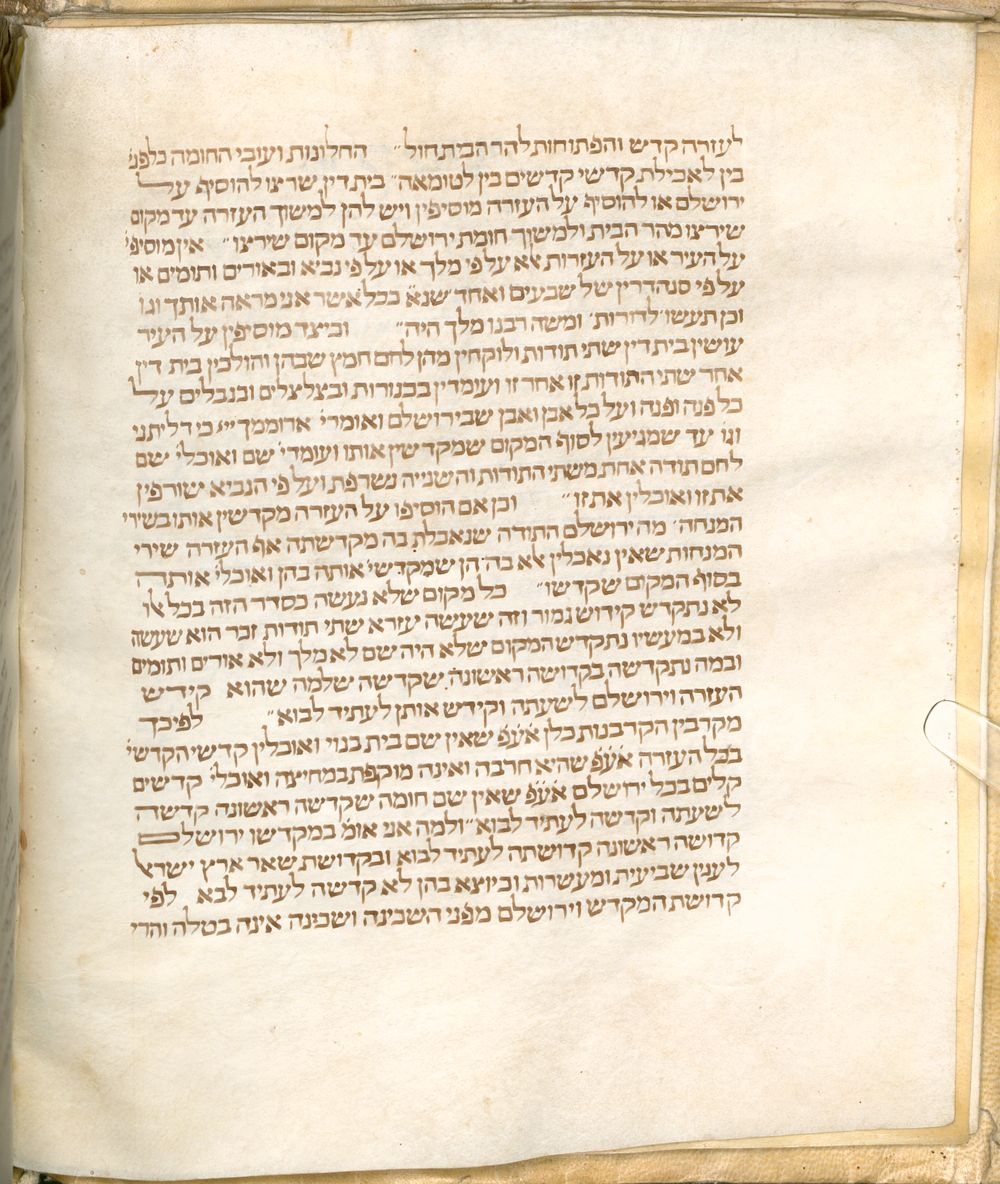 לעזרה קדש והפתוחות להר הבית חול״ החלונות ועובי החומה כלפני׳
בין לאכילת קדשי קדשים בין לטומאה״ בית דין שרצו להוסיף על
ירושלם או להוסיף על העזרה מוסיפין ויש להן למשוך העזרה עד מקום
שירצו מהר הבית ולמשוך חומת ירושלם עד מקום שירצו״ אין מוסיפי׳
על העיר או על העזרות אלא על פי מלך או על פי נביא ובאורים ותומים או
על פי סנהדרין של שבעים ואחד שנא׳ ככל אשר אני מראה אותך וגו׳
וכן תעשו לדורות׳ ומשה רבנו מלך היה״ וכיצד מוסיפין על העיר
עושין בית דין שתי תודות ולוקחין מהן לחם חמץ שבהן והולכין בית דין
אחר שתי התודות זו אחר זו ועומדין בכנורות ובצלצלים ובנבלים על
כל פנה ופנה ועל כל אבן ואבן שבירושלם ואומרי׳ ארוממך ייי כי דליתני
וגו׳ עד שמגיעין לסוף המקום שמקדשין אותו ועומדי׳ שם ואוכלי׳ שם
לחם תודה אחת משתי התודות והשנייה נשרפת ועל פי הנביא שורפין
את זו ואוכלין את זו״ וכן אם הוסיפו על העזרה מקדשין אותו בשירי
המנחה׳ מה ירושלם התודה שנאכלת בה מקדשתה אף העזרה שירי
המנחות שאין נאכלין אלא בה הן שמקדשי׳ אותה בהן ואוכלי׳ אותה
בסוף המקום שקדשו״ כל מקום שלא נעשה כסדר הזה בכל אלו
לא נתקדש קידוש גמור וזה שעשה עזרא שתי תודות זכר הוא שעשה
ולא במעשיו נתקדש המקום שלא היה שם לא מלך ולא אורים ותומים
ובמה נתקדשה בקדושה ראשונה שקדשה שלמה שהוא קידש
העזרה וירושלם לשעתה וקידש אותן לעתיד לבוא״ לפיכך
מקרבין הקרבנות כלן אע״פ שאין שם בית בנוי ואוכלין קדשי הקדשי׳
בכל העזרה אע״פ שהיא חרבה ואינה מוקפת במחיצה ואוכלי׳ קדשים
קלים בכל ירושלם אע״פ שאין שם חומה שקדשה ראשונה קדשה
לשעתה וקדשה לעתיד לבוא״ ולמה אני אומ׳ במקדש וירושלם
קדושה ראשונה קדושתה לעתיד לבוא ובקדושת שאר ארץ ישראל
לענין שביעית ומעשרות וכיוצא בהן לא קדשה לעתיד לבא לפי
קדושת המקדש וירושלם מפני השכינה ושכינה אינה בטלה והרי